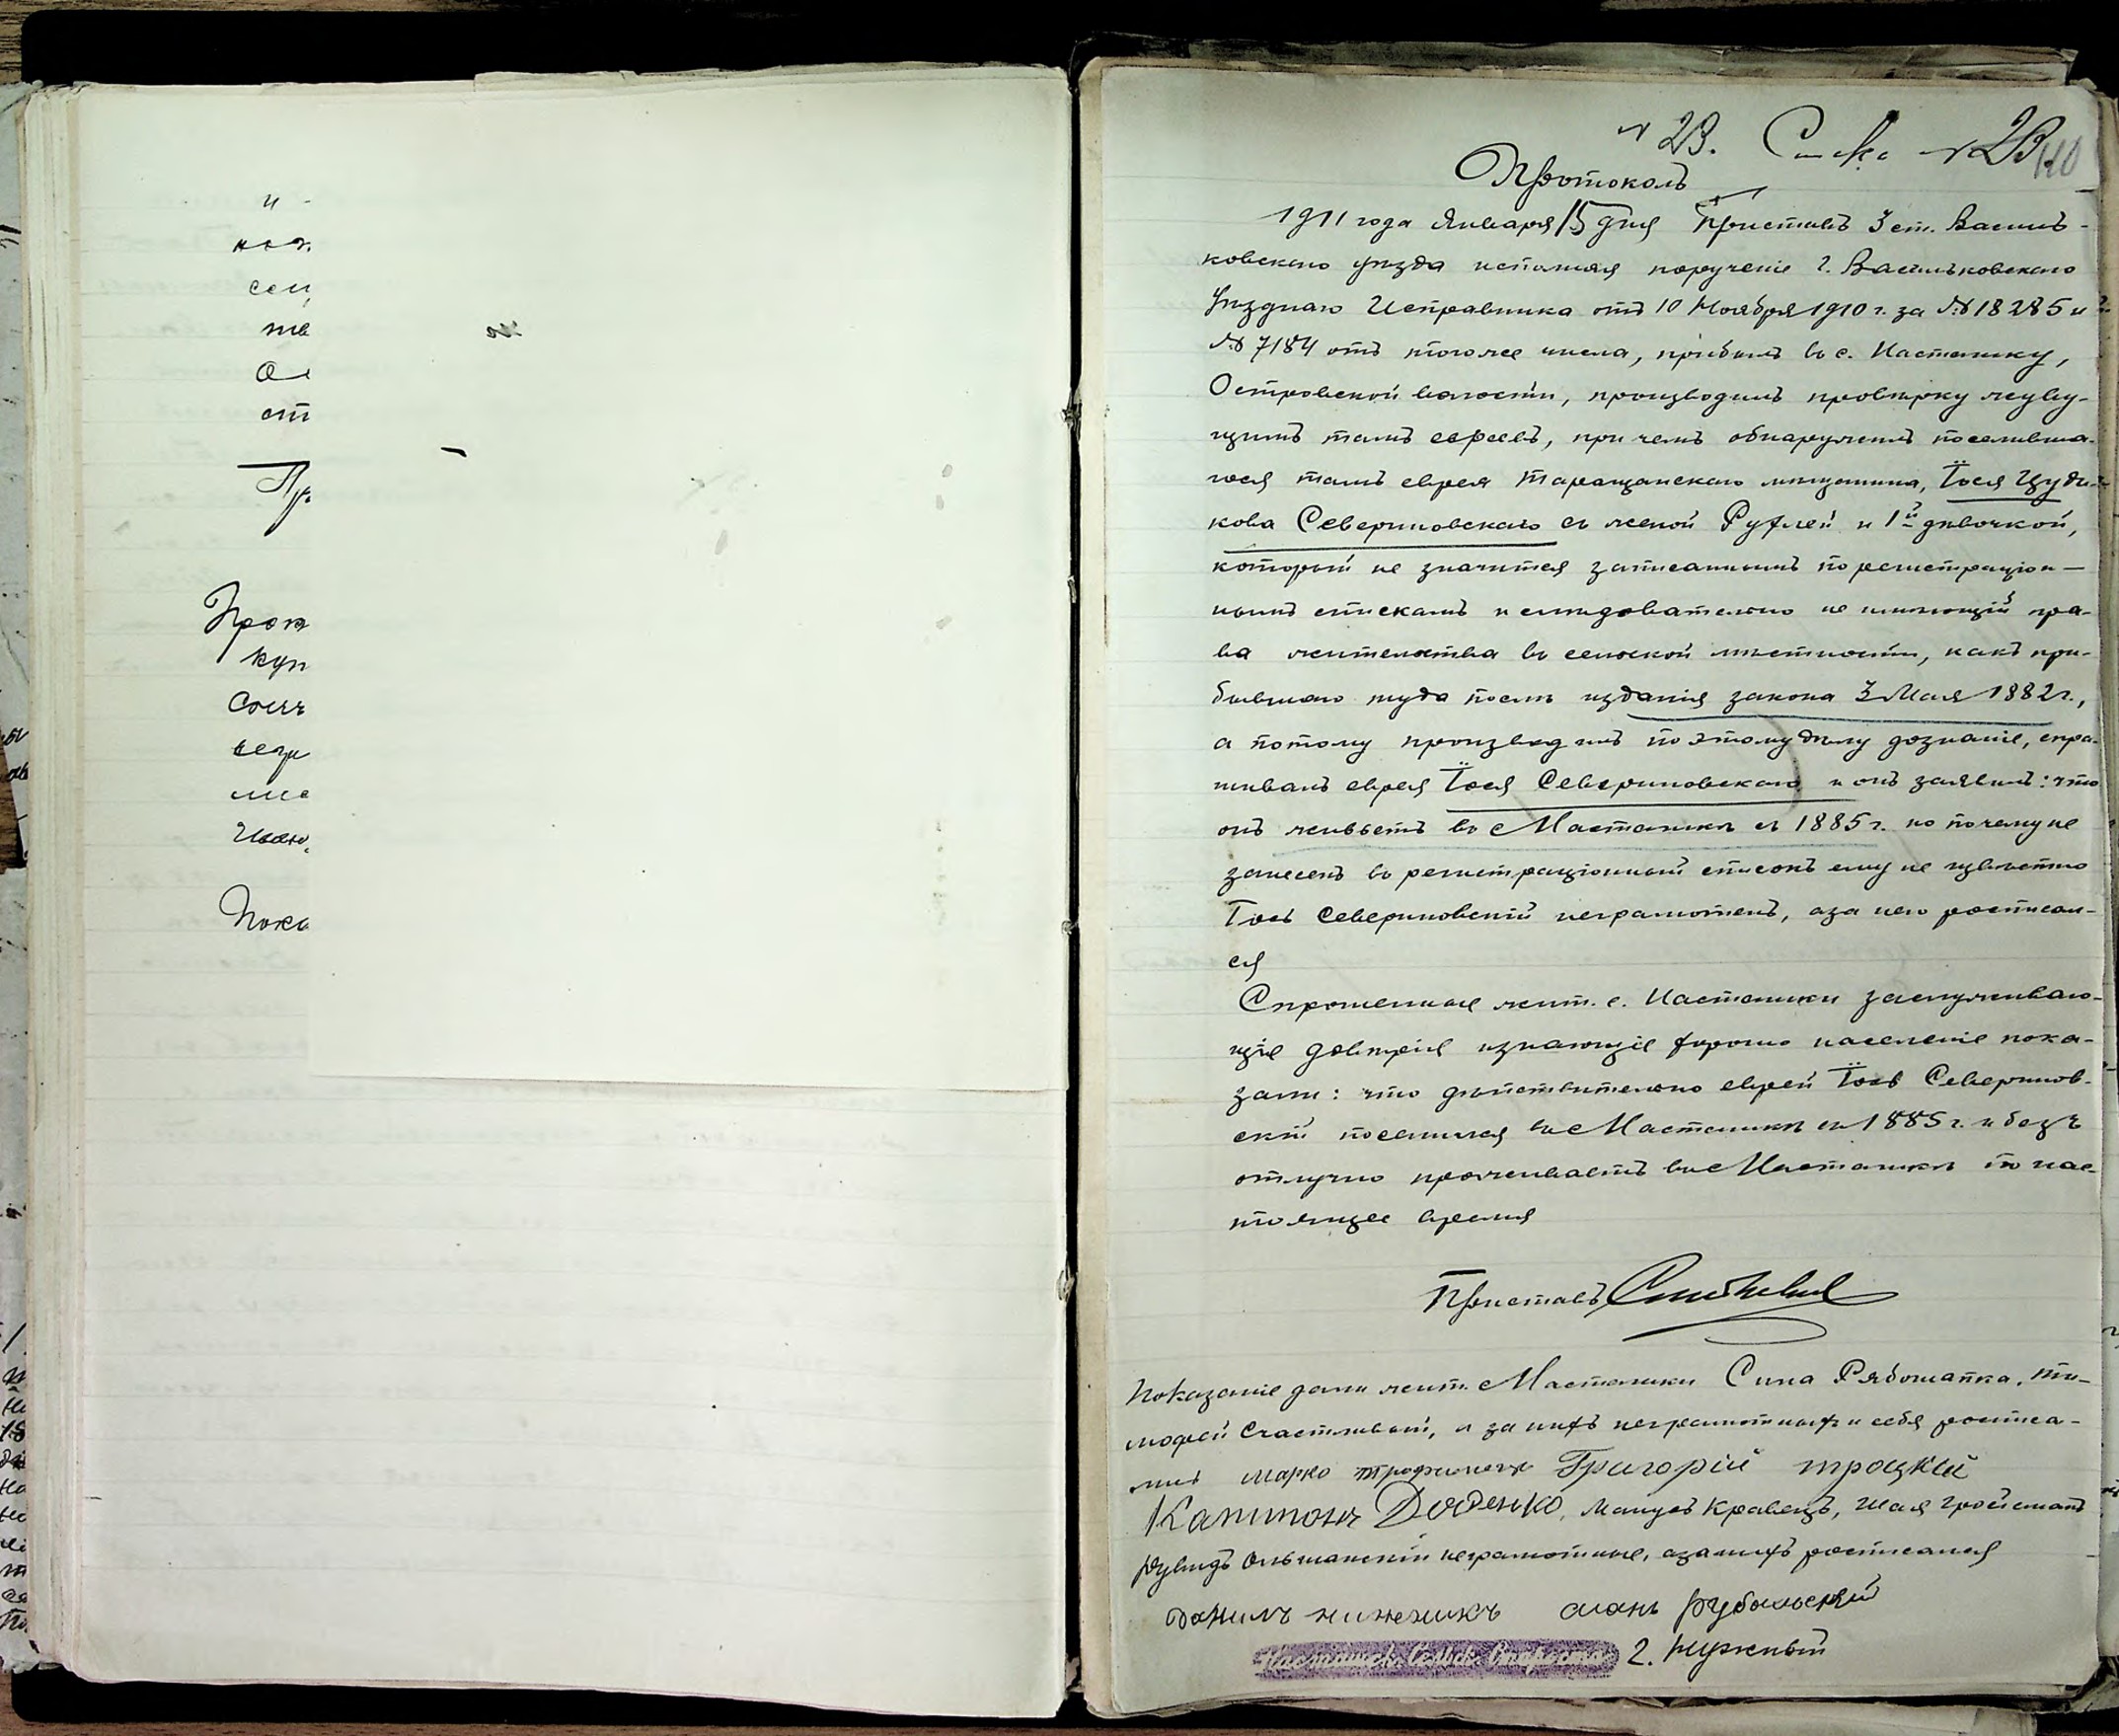 и
сем
тв
от
Пр
Прот
куп
Сосл
везу
Показ
№ 23.
Протоколъ
1911 года Января 15 дня Приставъ 3 ст. Василь-
ковскаго уѣзда исполняя порученіе г. Васильковскаго
Уѣзднаго Исправника отъ 10 Ноября 1910 г. за № 18285 и
№ 7184 отъ того же числа, прибылъ въ с. Насташку,
Островской волости, производилъ провѣрку живу-
щимъ тамъ евреевъ, при чемъ обнаруженъ поселивша-
гося тамъ еврея Таращанскаго мѣщанина, Іося Цуди-
кова Севериновскаго съ женой Рухлей и 1й дѣвочкой,
который не значится записаннымъ по регистраціон-
нымъ спискамъ и слѣдовательно не имѣющій пра-
ва жительства въ сельской мѣстности, какъ при-
бывшаго туда послѣ изданія закона 3 Мая 1882 г.,
а потому произведя по этому дѣлу дознаніе, спра-
шивалъ еврея Іося Севериновскаго и онъ заявилъ: что
онъ живетъ въ с Насташкѣ съ 1885 г. но почему не
занесенъ въ регистраціонный списокъ ему не извѣстно
Іось Севериновскій неграмотенъ, а за него росписал-
ся
Спрошенные жит. с. Насташки заслуживаю-
щіе довѣрія и знающіе хорошо населеніе пока-
зали: что дѣйствительно еврей Іось Северинов-
скій поселился въ с Насташкѣ съ 1885 г. и безъ
отлучно проживаетъ въ с Насташкѣ по нас-
тоящее время
Приставъ
Показаніе дали жит. с Насташки Сила Рябошапка, Ти-
мофей Счастливый, а за нихъ неграмотныхъ и себя росписа-
лись Марко Григорій Троцкій
Капитонъ Доденко, Манусъ Кравецъ, Шая Гройсманъ
Дувидъ Ольшанскій неграмотные, а за нихъ росписался
Данилъ нижникъ
Г. Нужный